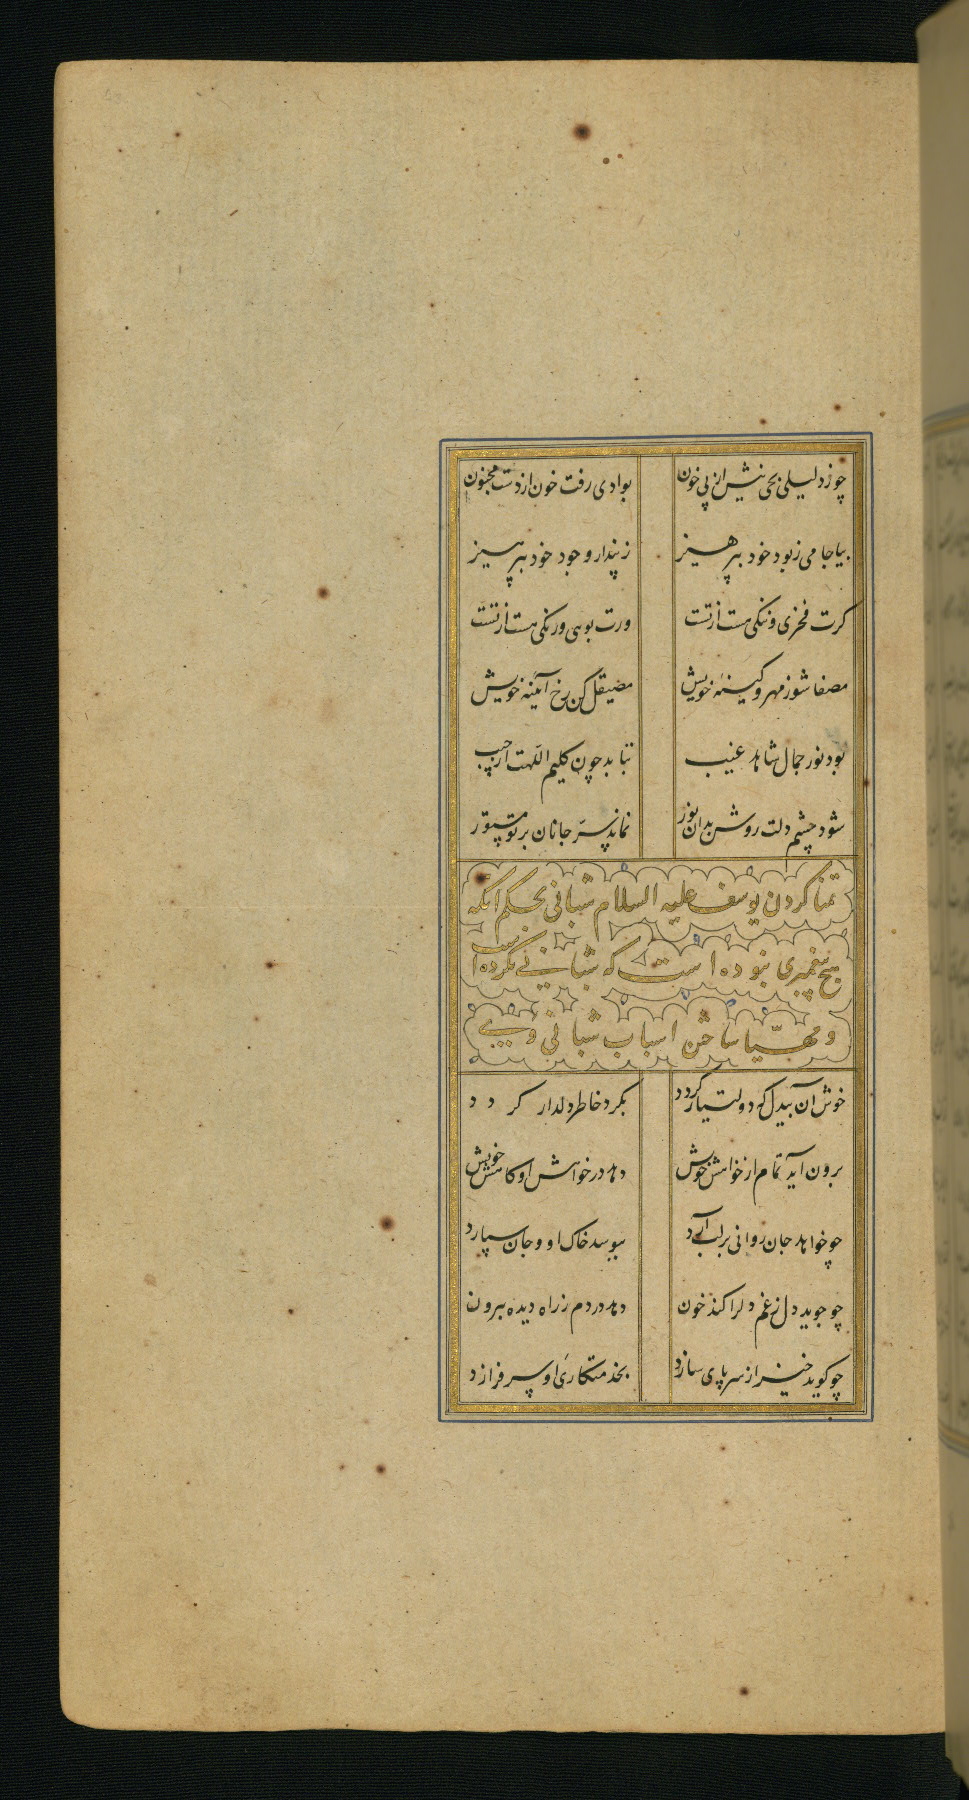 چو زد لیلی بحی نیش از پی خون بوادی رفت خون از دست مجنون
بیا جامی ز بود خود بپرهیز ز پندار وجود خود بپرهیز
کرت فخری و ننکی هست از تست ورت بویی و رنکی هست از تست
مصفا شو ز مهر و کینهٔ خویش مصیقل کن رخ آیینه خویش
بود نور جمال شاهد غیب بتابد چون کلیم اللهت از جیب
شود چشم دلت روشن بدان نور نماند سرّ جانان بر تو مستور
تمنا کردن یوسف علیه السلام شبانی بحکم انکه
هیچ پیغمبری نبوده است که شبانی نکرده است
و مهیّا ساختن اسباب شبانی وی
خوش آن بیدل که دولت یار کردد بکرد خاطر دلدار کردد
برون آید تمام از خواهش خویش دهد در خواهش او کاهش خویش
چو خواهد جان روانی بر لب آرد ببوسد خاک او و جان سپارد
چو جوید دل ز غم دل را کند خون دهد در دم ز راه دیده بیرون
چو کوید خیز از سر پای سازد بخدمتکاری او سر فرازد